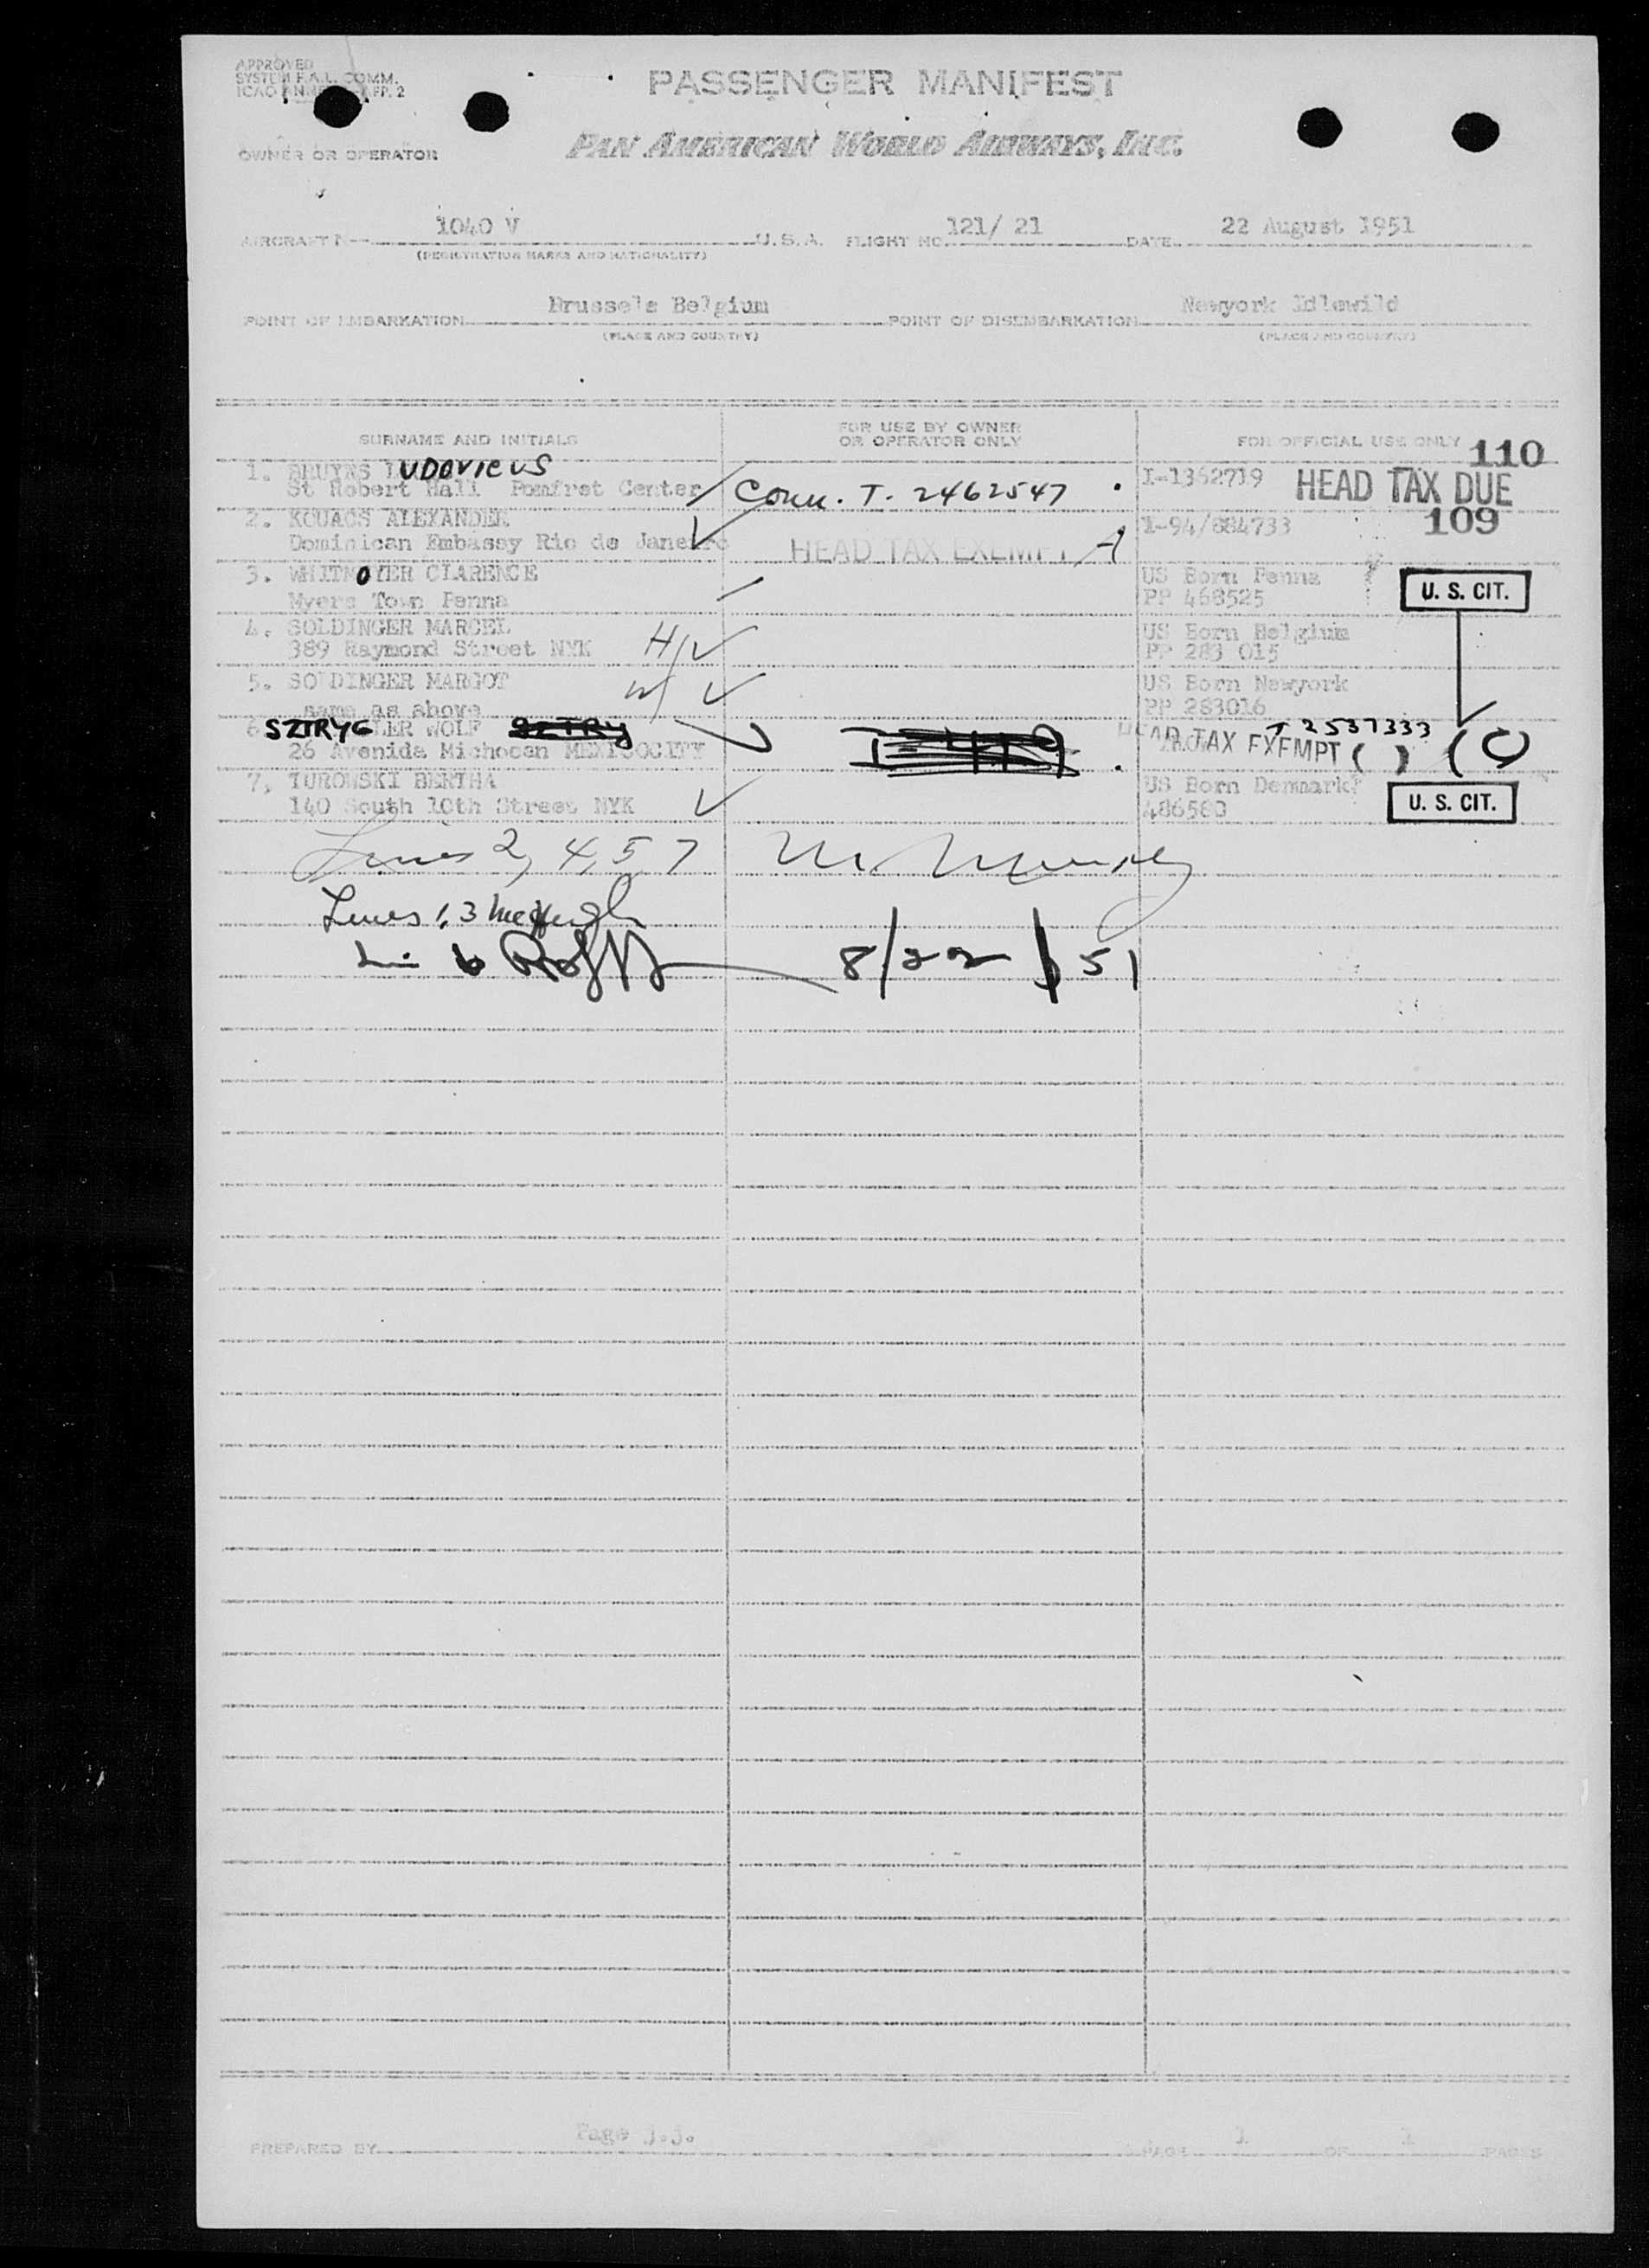 APPROVED
SYSTEM F.A.L. COMM.
ICAO APP. 2
PASSENGER MANIFEST
OWNER OR OPERATOR PAN AMERICAN WORLD AIRWAYS, INC.
AIRCRAFT N-- 1040 V U.S.A. FLIGHT NO. 121/ 21 DATE 22 August 1951
(REGISTRATION MARKS AND NATIONALITY)
POINT OF EMBARKATION Brussels Belgium POINT OF DISEMBARKATION Newyork Idlewild
(PLACE AND COUNTRY) (PLACE AND COUNTRY)
SURNAME AND INITIALS FOR USE BY OWNER OR OPERATOR ONLY FOR OFFICIAL USE ONLY 110
1. BRUYNS LUDOVICUS I-1362719 HEAD TAX DUE
St Robert Hall Pomfret Center Conn. T. 2462547
2. KOUACS ALEXANDER I-94/684733 109
Dominican Embassy Rio de Janeiro HEAD TAX EXEMPT A
3. WHITMOYER CLARENCE US Born Penna U. S. CIT.
Myers Town Penna PP 468525
4. SOLDINGER MARCEL H/ US Born Belgium
389 Raymond Street NYK PP 283 015
5. SOLDINGER MARGOT W/ US Born Newyork
same as above PP 283016
6. SZTRYG LER WOLF T 2537333
26 Avenida Michocan MEXICOCITY HEAD TAX EXEMPT ( ) (C)
7, TUROWSKI BERTHA US Born Denmark
140 South 10th Street NYK 486580 U. S. CIT.
Lines 2, 4, 5, 7
Lines 1, 3 McHugh
Li 6 8/22/51
PREPARED BY Page j.j. PAGE 1 OF 1 PAGES